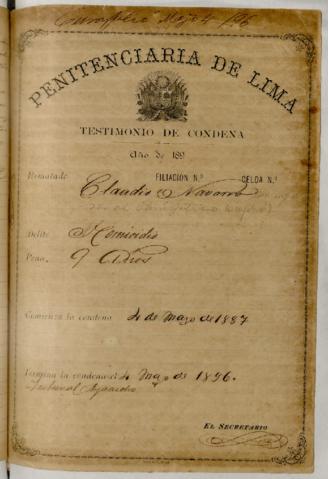 Cumplio Mayo 4/96
PENITENCIARIA DE LIMA
TESTIMONIO DE CONDENA
Año de 189
FILIACION N.º CELDA N.º
Rematado Claudio Navarro
Delito Homicidio
Pena 9 Años
Comienza la condena 4 de Mayo de 1887
Termina la condena el 4 Mayo de 1896.
Tribunal
EL SECRETARIO